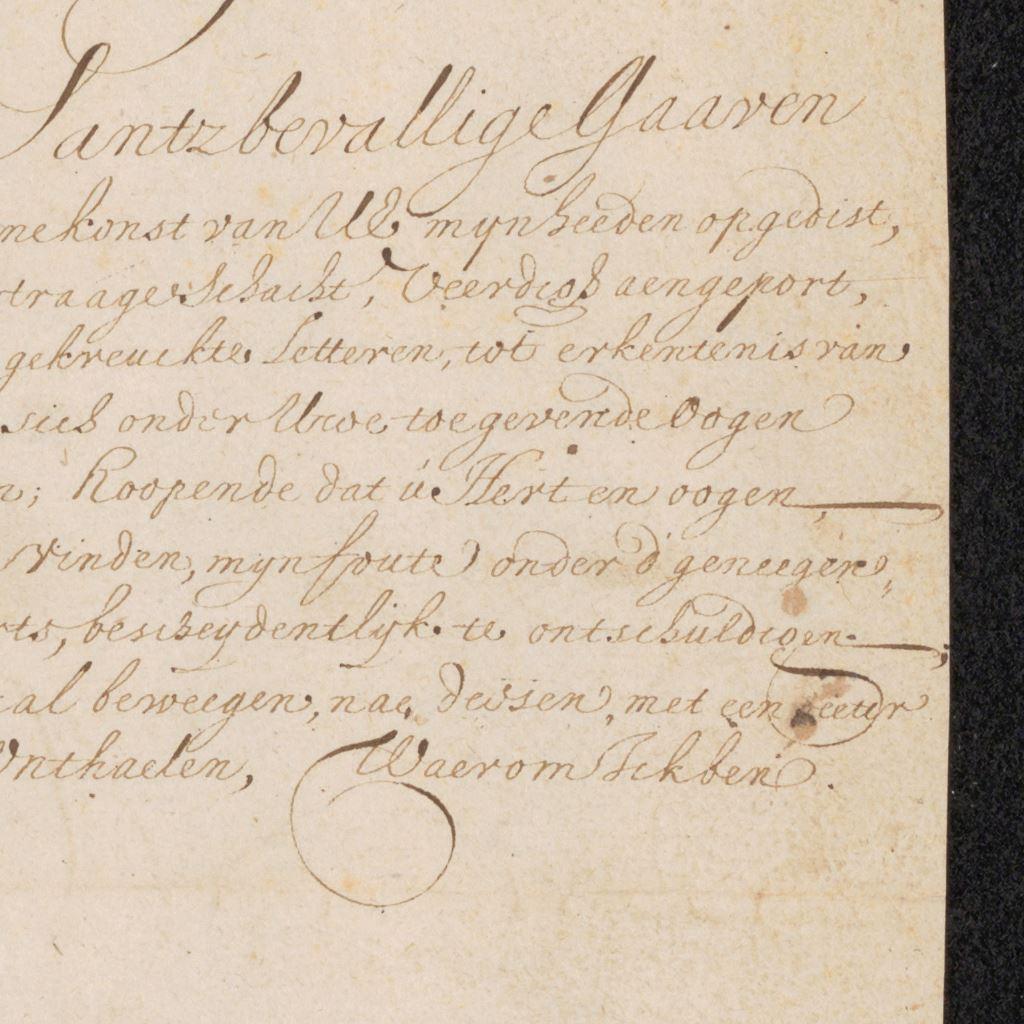 Santzbevallige Gaaven
me konst van UE, mijn heeden opgedist,
traage Schacht, Veerdigh aengeport,
gekreuckte Letteren, tot erkentenis van
sich onder Uwe toegevende Oogen
n; Hoopende dat u Hert en oogen,
vinden, mijn foute onder d'geneegen,
rts, bescheydentlijk te ontschuldigen
al beweegen, nae desen, met een
Onthaelen, Waerom Ick ben.